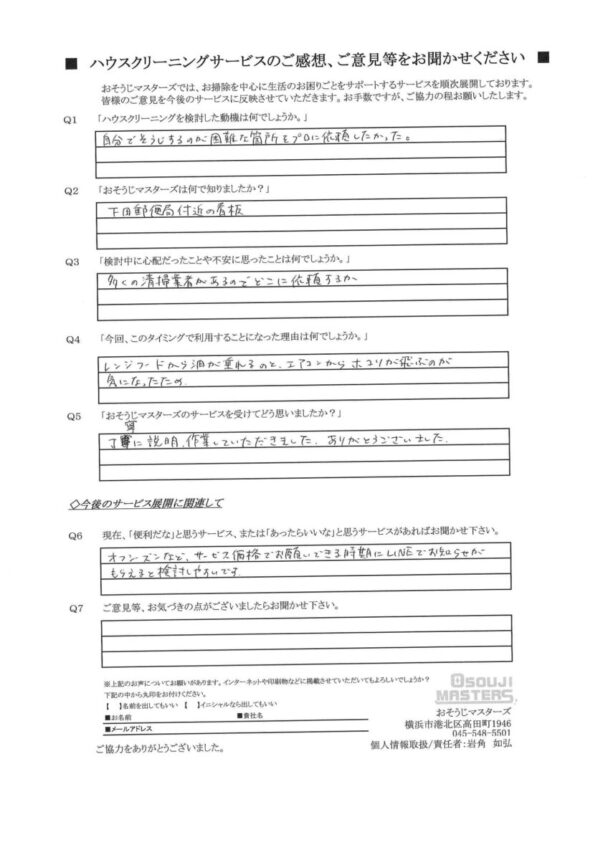 ■ ハウスクリーニングサービスのご感想、ご意見等をお聞かせください ■
おそうじマスターズでは、お掃除を中心に生活のお困りごとをサポートするサービスを順次展開しております。
皆様のご意見を今後のサービスに反映させていただきます。お手数ですが、ご協力の程お願いいたします。
Q1 「ハウスクリーニングを検討した動機は何でしょうか。」
自分でそうじするのが困難な箇所をプロに依頼したかった。
Q2 「おそうじマスターズは何で知りましたか？」
下田郵便局付近の看板
Q3 「検討中に心配だったことや不安に思ったことは何でしょうか。」
多くの清掃業者があるのでどこに依頼するか
Q4 「今回、このタイミングで利用することになった理由は何でしょうか。」
レンジフードから油が垂れるのと、エアコンからホコリが飛ぶのが
気になったため
Q5 「おそうじマスターズのサービスを受けてどう思いましたか？」
丁寧に説明、作業していただきました。ありがとうございました。
◇今後のサービス展開に関連して
Q6 現在、「便利だな」と思うサービス、または「あったらいいな」と思うサービスがあればお聞かせ下さい。
オフシーズンなど、サービス価格でお願いできる時期にLINEでお知らせが
もらえると検討しやすいです
Q7 ご意見等、お気づきの点がございましたらお聞かせ下さい。
※上記のお声についてお願いがあります。インターネットや印刷物などに掲載させていただいてもよろしいでしょうか？
下記の中から丸印をお付けください。
【 】名前を出してもいい 【 】イニシャルなら出してもいい
■お名前 ■貴社名
■メールアドレス
ご協力をありがとうございました。
OSOUJI
MASTERS
おそうじマスターズ
横浜市港北区高田町1946
045-548-5501
個人情報取扱/責任者：岩角 如弘